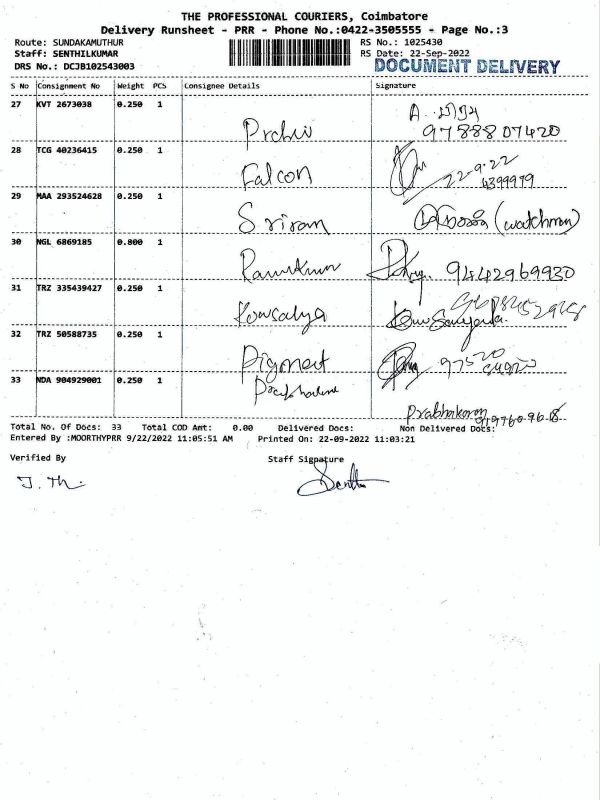 THE PROFESSIONAL COURIERS, Coimbatore
Delivery Runsheet - PRR - Phone No.:0422-3505555 - Page No.:3
Route: SUNDAKAMUTHUR RS No.: 1025430
Staff: SENTHILKUMAR RS Date: 22-Sep-2022
DRS No.: DCJB102543003 DOCUMENT DELIVERY
S No Consignment No Weight PCS Consignee Details Signature
27 KVT 2673038 0.250 1
9788807420
28 TCG 40236415 0.250 1 Falcon 22-9-22
4399979
29 MAA 293524628 0.250 1 Sriram (watchman)
30 NGL 6869185 0.800 1 9442969930
31 TRZ 335439427 0.250 1 Kowsalya
32 TRZ 50588735 0.250 1 Pigment 97520
33 NDA 904929001 0.250 1
Prabhakaran
Total No. Of Docs: 33 Total COD Amt: 0.00 Delivered Docs: Non Delivered Docs:
Entered By :MOORTHYPRR 9/22/2022 11:05:51 AM Printed On: 22-09-2022 11:03:21
Verified By Staff Signature